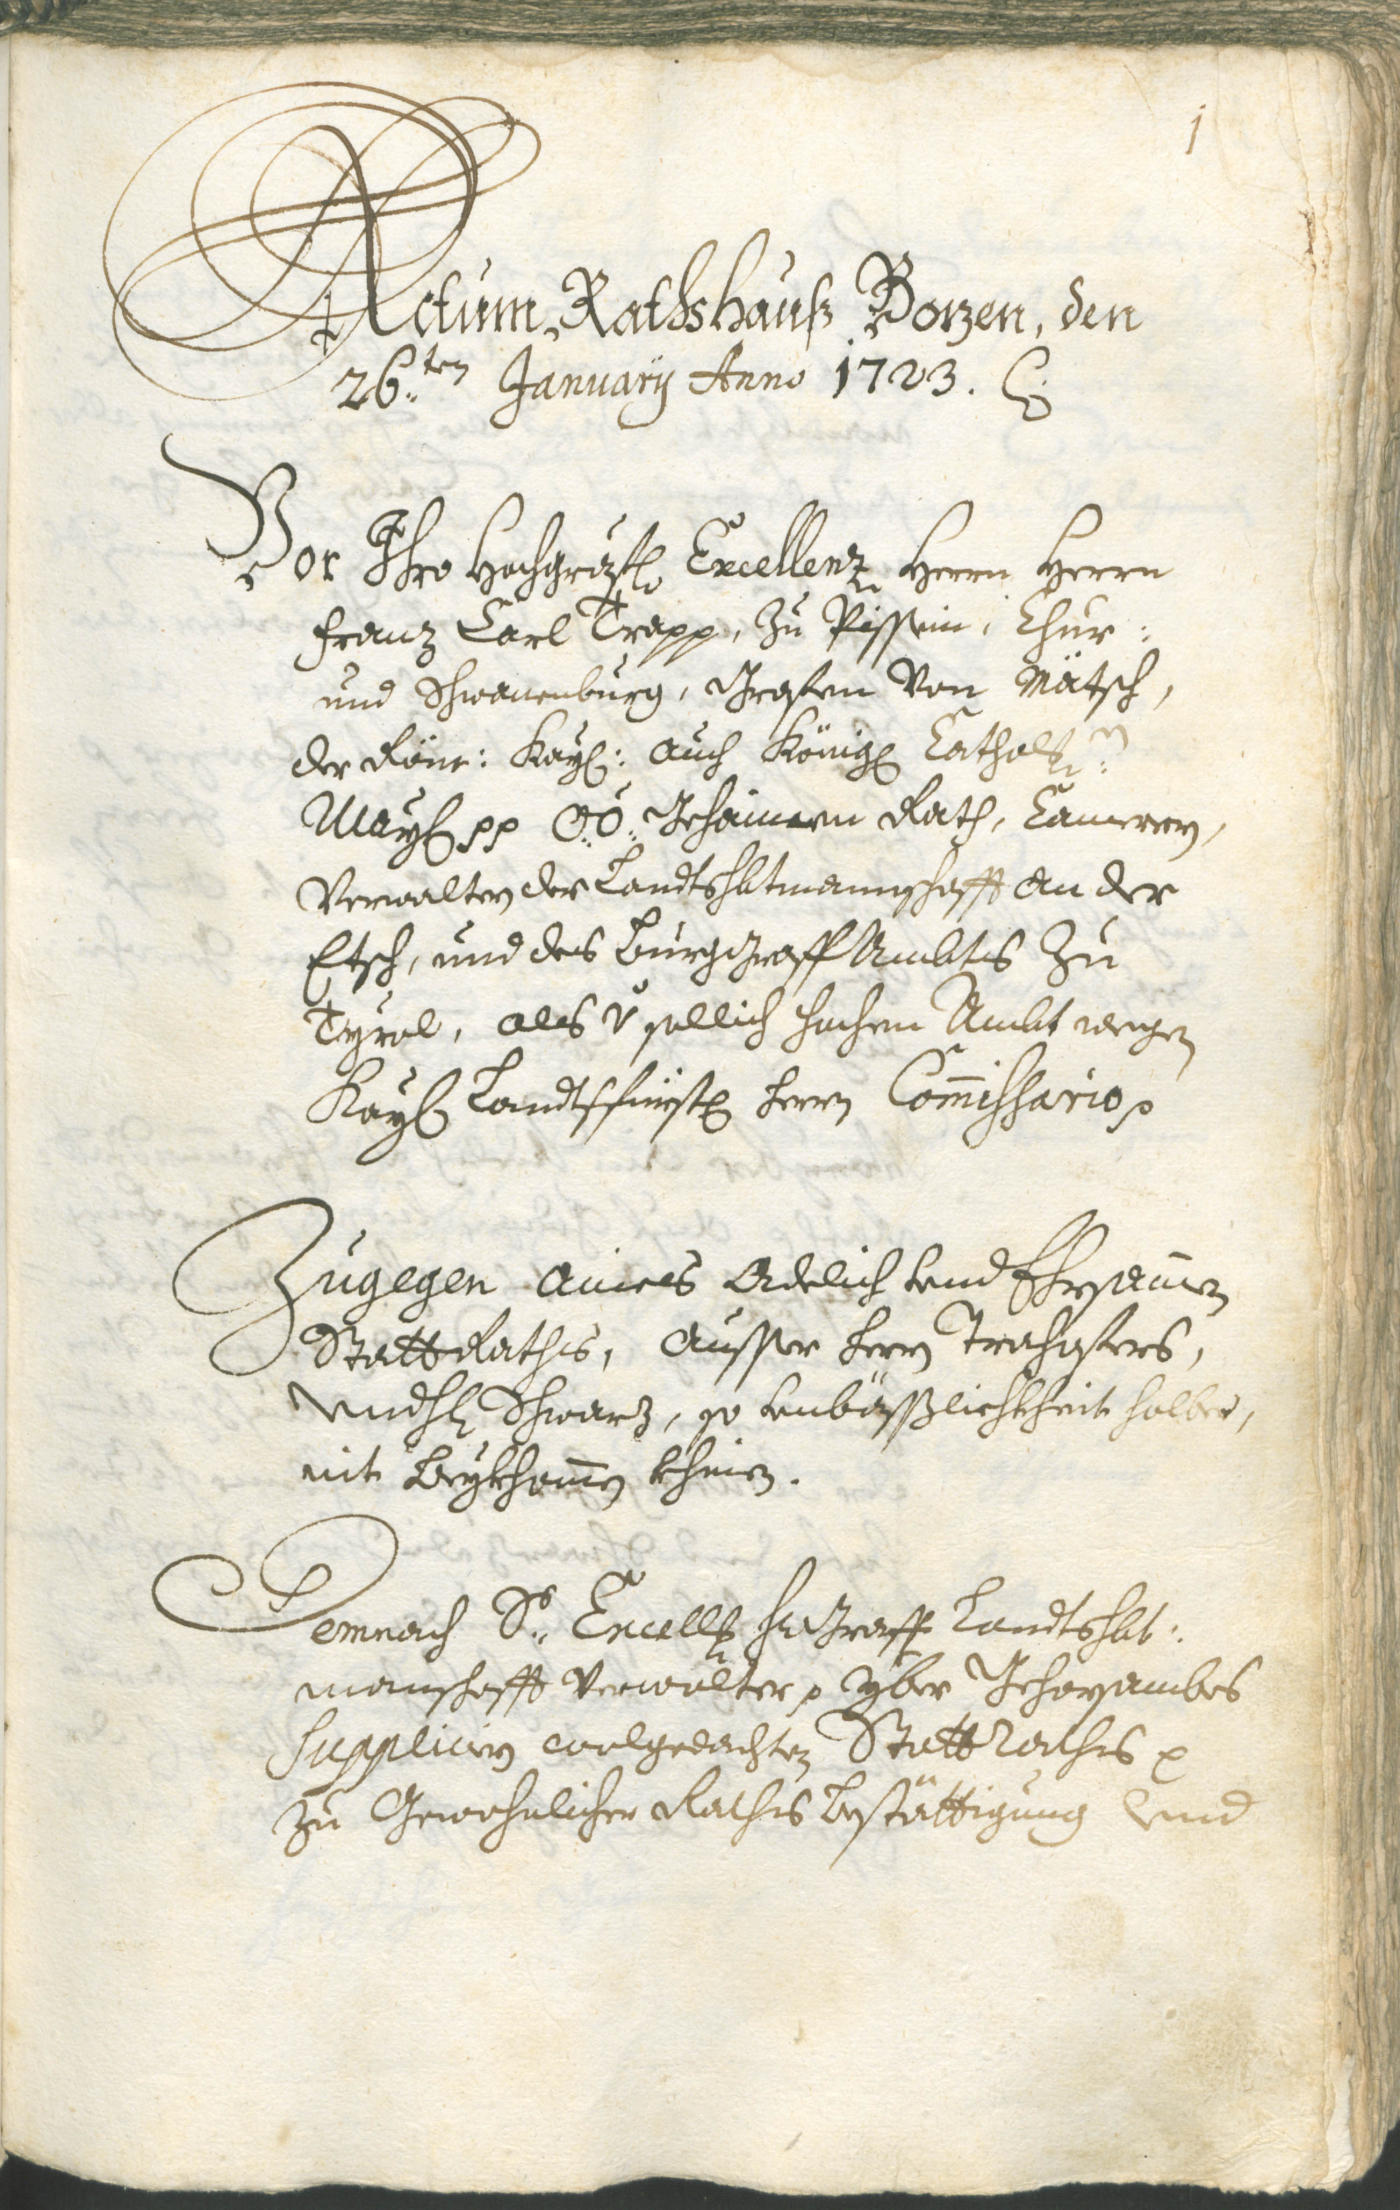 1
Actum Rathshauß Bozen, den
26.ten January Anno 1723.
Vor Ihro Hochgräfl Excellenz Herrn Herrn
Franz Carl Trapp, zu Pissein, Chur:
und Schwanenburg, Grafen Von Mätsch,
der Röm: Kay: auch Königl Cathol:
May pp OÖ: Gehaimen Rath, Camerern,
Verwaltern der Landtshbtmannschafft an der
Etsch, und des Burggraff Ambts zu
Tyrol, als v sollich hochem Ambt wegen
Kayl Landtsfürstl Herrn Commissario p
Zugegen aines Adelich und Ehrsamen
Statt Raths, ausser Herrn Trahofers,
und H Schwarz, so unbäßlichkheit halber,
nit beykhomen khinen.
Demnach Se. Excellz H Graff Landtshbt:
manschafft Verwalter p yber Gehorsambes
suppliciern wolgedachten Statt Raths p
zu Gewohnlicher Raths bestättigung und